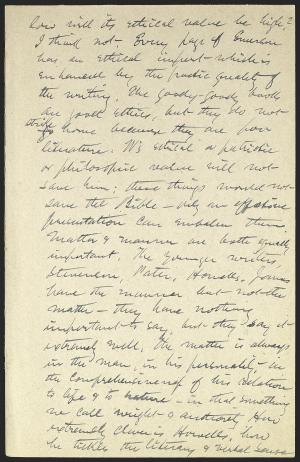 low will its ethical value be high?
I think not. Every page of Emerson
has an ethical import which is
enhanced by the poetic quality of
the writing. The goody-goody books
are good ethics, but they do not
strike home because they are poor
literature. W's ethical or patriotic
or philosophic value will not
save him; these things would not
save the Bible - only an effective
presentation can embalm them.
Matter & manner are both equally
important. The younger writers
Stevenson, Pater, Howells, James
have the manner but not the
matter - they have nothing
important to say, but they say it
extremely well. The matter is always
in the man, in his personality, in
the comprehensiveness of his relation
to life & to nature - in that something
we call weight & authority. How
extremely clever is Howells, how
he tickles the literary & verbal sense